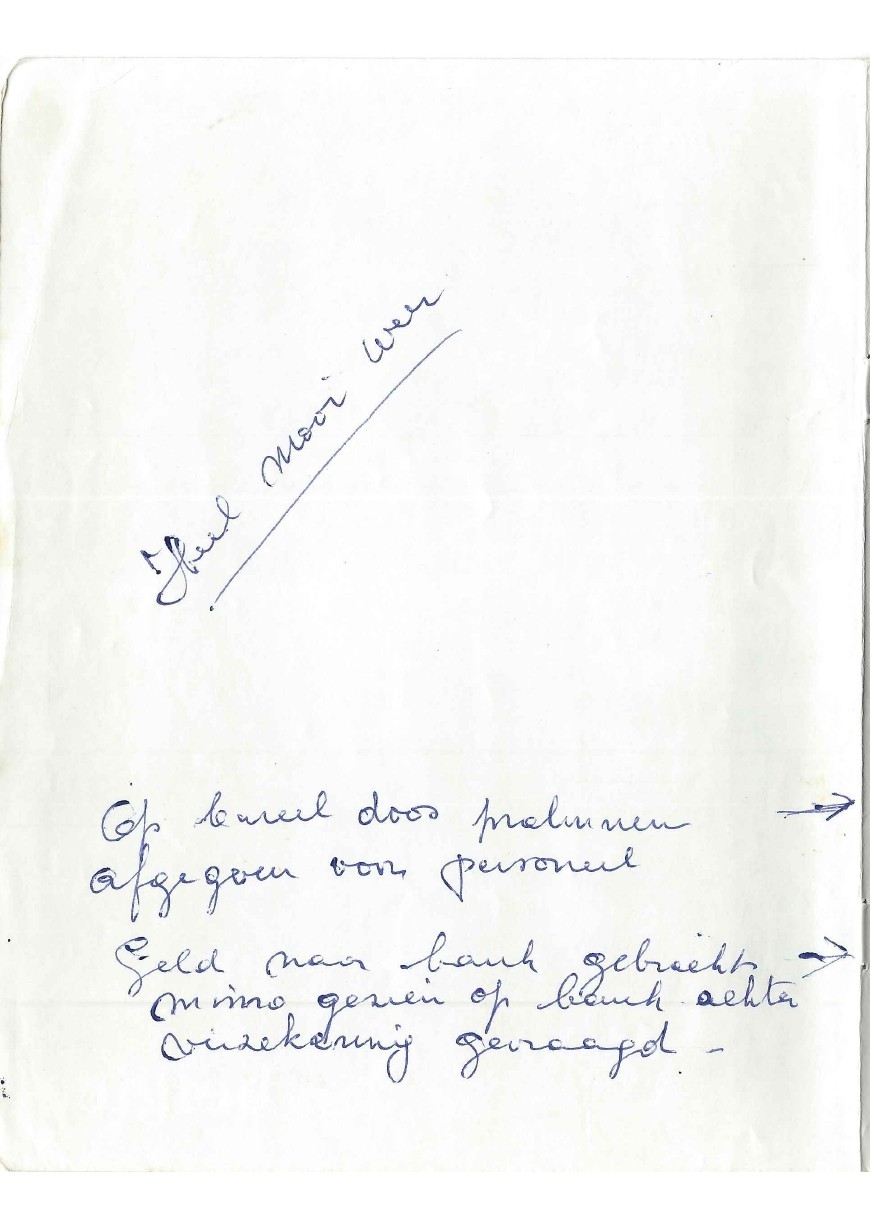 Heel mooi weer
Op bureel doos pralinnen →
afgegeven voor personeel
Geld naar bank gebracht →
gezien op bank achter
verzekering gevraagd -